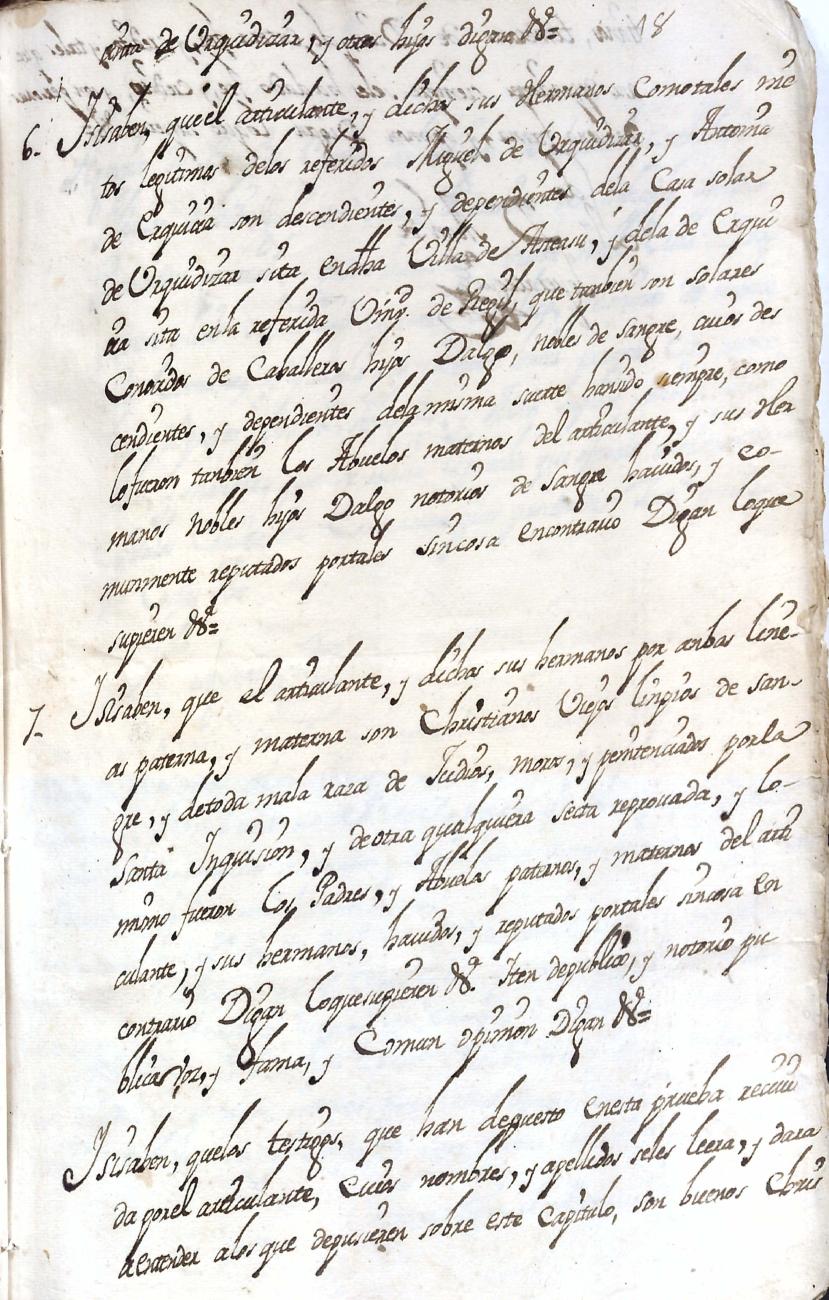 18
anta de Urquidizar, y otros hijos digan &ª=
6- Isisaben, que el articulante, y dichos sus Hermanos como tales nie
tos legitimos delos referidos Miguel de Urquidizar, y Antonia
de Erquicia son descendientes, y dependientes dela Casa solar
de Urquidizar sita en dha Villa de Asteasu, y dela de Erqui
cia sita en la referida Vnivd. de Regil, que tanbien son solares
Conocidos de Caballeros hijos Dalgo, nobles de sangre, cuios des
cendientes, y dependientes dela misma suerte hansido siempre, como
lo fueron tanbien los Abuelos maternos del articulante, y sus Her
manos nobles hijos Dalgo notorios de sangre havidos, y co-
munmente reputados portales sincosa encontrario Digan loque
supieren &ª=
7- Isisaben, que el articulante, y dichos sus hermanos por anbas line-
as paterna, y materna son Christianos Viejos linpios de san-
gre, y detoda mala raza de Judios, moros, y penitenciados porla
Santa Inquisicion, y deotra qualquiera secta reprovada, y lo-
mismo fueron los Padres, y Abuelos paternos, y maternos del arti
culante, y sus hermanos, havidos, y reputados portales sincosa en
contrario Digan loquesupieren &ª Iten depublico, y notorio pu
blica voz, y fama, y Comun opinion Digan &ª=
Isisaben, quelos testigos, que han depuesto enesta prueba recivi
da porel articulante, cuios nombres, y apellidos seles leera, y dara
aentender alos que depusieren sobre este Capitulo, son buenos Chris